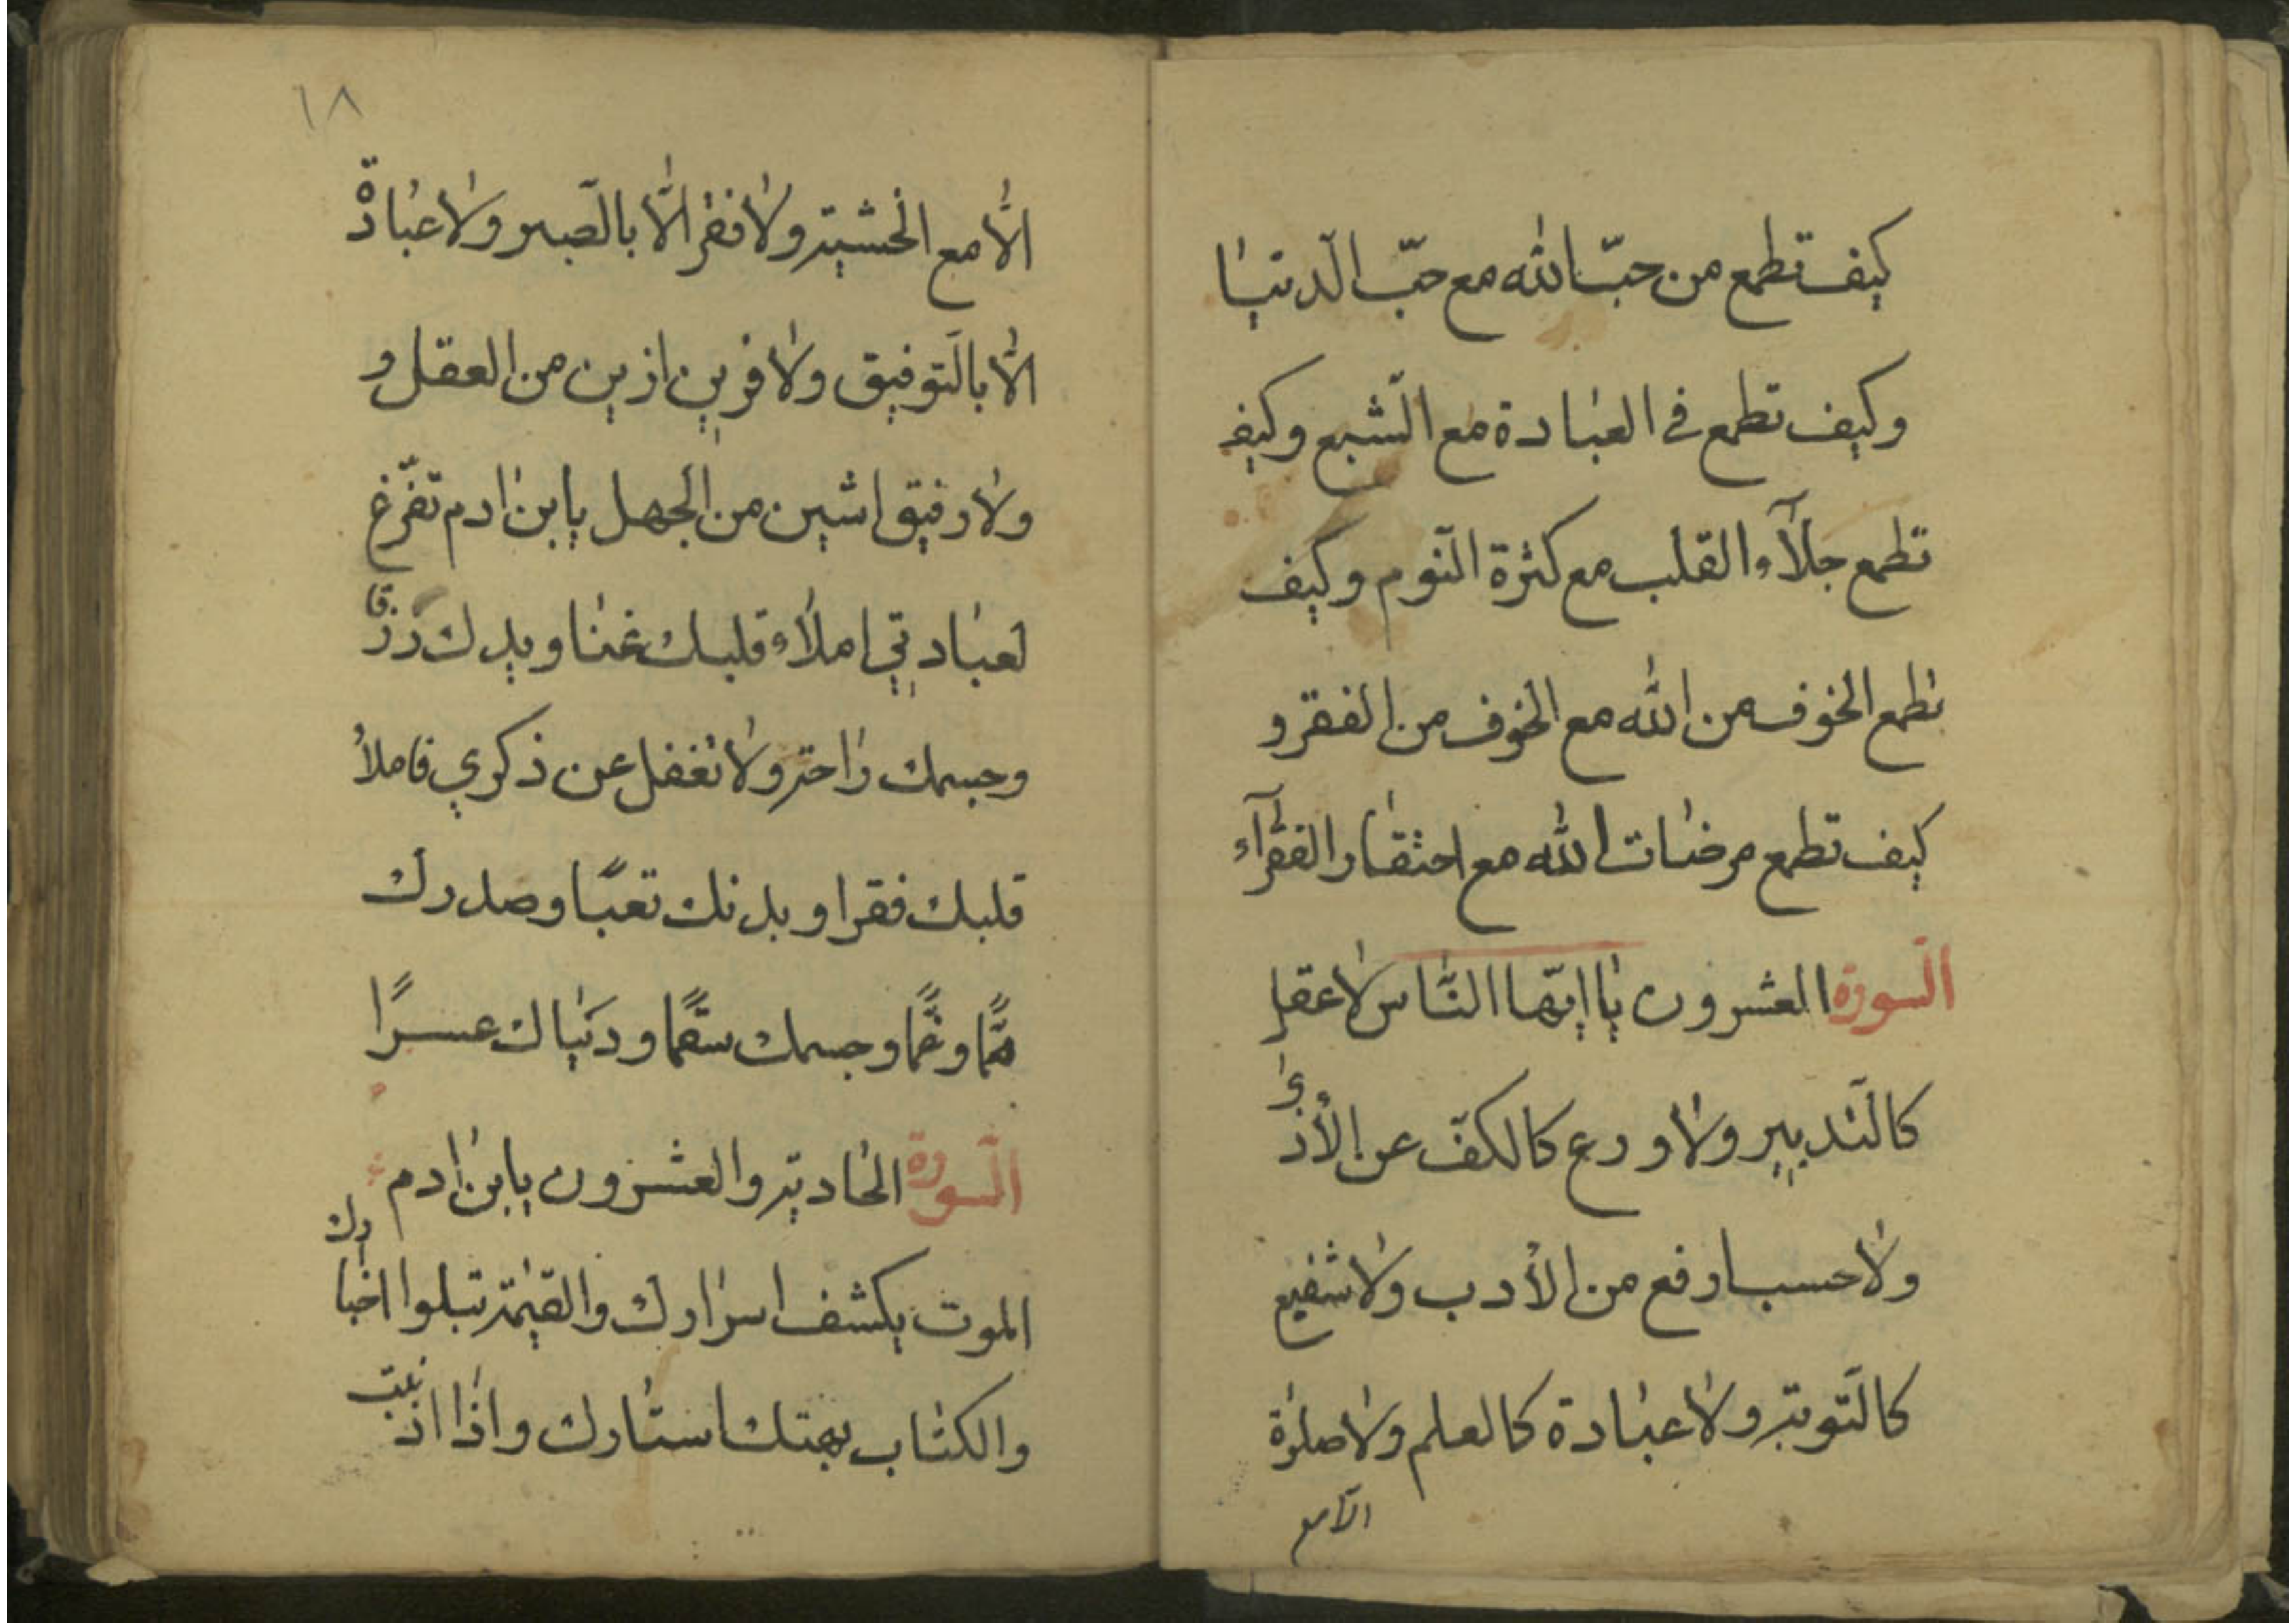 كيف تطمع من حبّ الله مع حبّ الدّنيا
وكيف تطمع في العبادة مع الشّبع وكيف
تطمع جلآء القلب مع كثرة النّوم وكيف
تطمع الخوف من الله مع الخوف من الفقر و
كيف تطمع مرضات الله مع احتقار الفقرآء
السّورة العشرون يا ايّها النّاس لا عقل
كالتّدبير ولا ورع كالكفّ عن الأذى
ولا حسب ارفع من الأدب ولا شفيع
كالتّوبة ولا عبادة كالعلم ولا صلوة
الّا مع
١٨
الّا مع الخشية ولا فقر الّا بالصّبر ولا عبادة
الّا بالتّوفيق ولا قرين ازين من العقل و
ولا رفيق اشين من الجهل يابن ادم تفرّغ
لعبادتي املاء قلبك غنا ويدك رزقا
وجسمك راحة ولا تغفل عن ذكري فاملأ
قلبك فقرا وبدنك تعبًا وصدرك
همًّا وغمًّا وجسمك سقمًا ودنياك عسرًا
السّورة الحادية والعشرون يابن ادم
الموت يكشف اسرارك والقيمة تبلوا اخبارك
والكتاب يهتك استارك واذا اذنبت